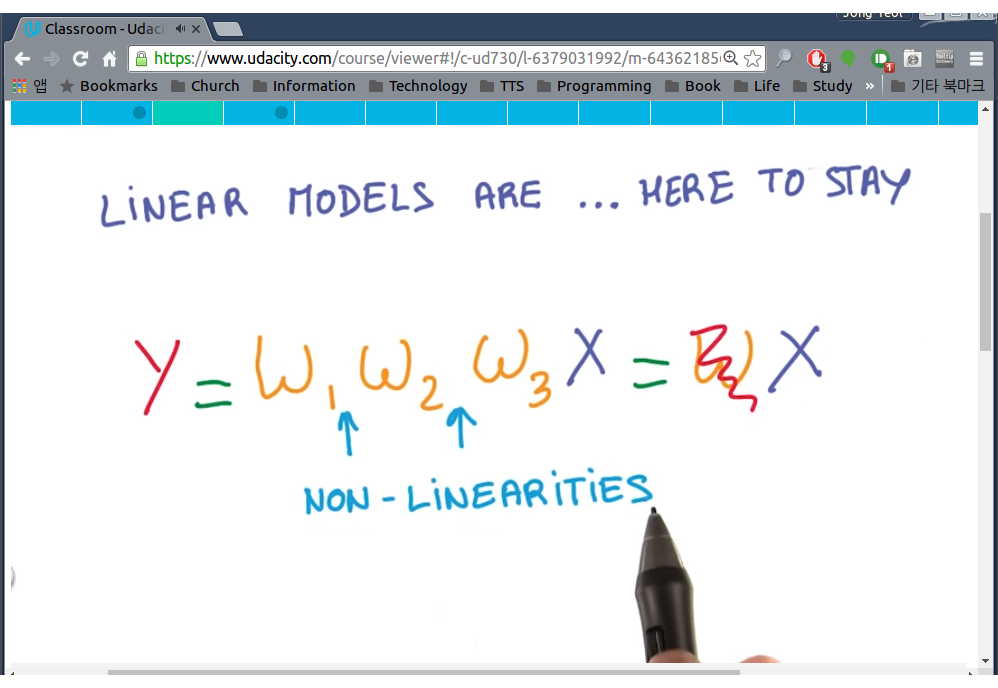 Jong Yeol
Classroom - Udaci
https://www.udacity.com/course/viewer#!/c-ud730/l-6379031992/m-64362185
3
1
앱 Bookmarks Church Information Technology TTS Programming Book Life Study » 기타 북마크
LiNEAR MODELS ARE ... HERE TO STAY
Y = W1 W2 W3 X = W X
NON-LiNEARiTiES